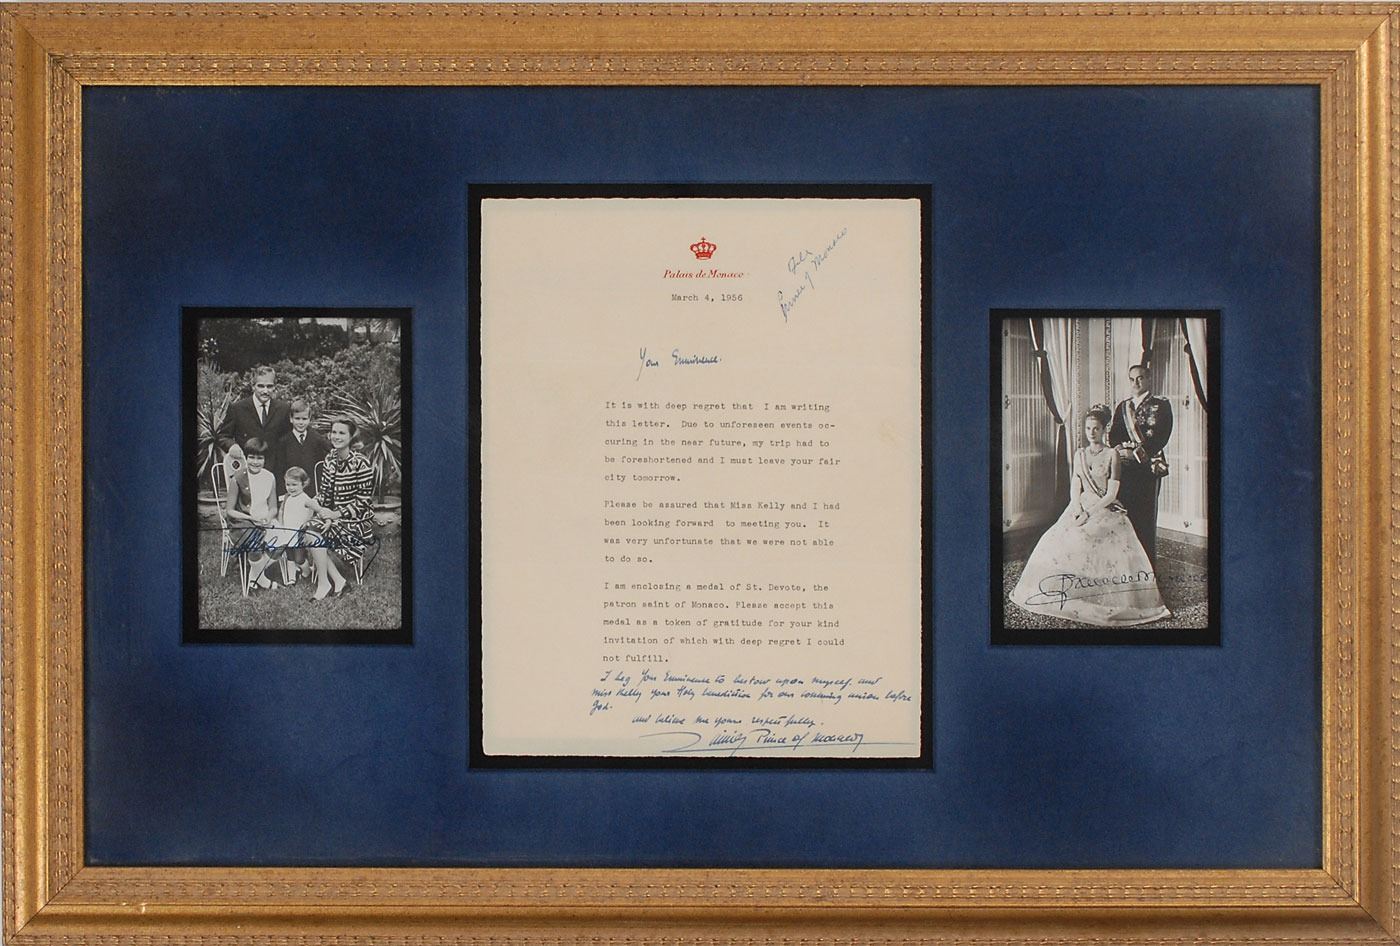 File
Prince of Monaco
Palais de Monaco
March 4, 1956
Your Eminence.
It is with deep regret that I am writing
this letter. Due to unforeseen events oc-
curing in the near future, my trip had to
be foreshortened and I must leave your fair
city tomorrow.
Please be assured that Miss Kelly and I had
been looking forward to meeting you. It
was very unfortunate that we were not able
to do so.
I am enclosing a medal of St. Devote, the
patron saint of Monaco. Please accept this
medal as a token of gratitude for your kind
invitation of which with deep regret I could
not fulfill.
I beg Your Eminence to bestow upon myself and
miss Kelly your Holy benediction for our coming union before
God.
and believe me yours respectfully.
Prince of Monaco
Grace de Monaco